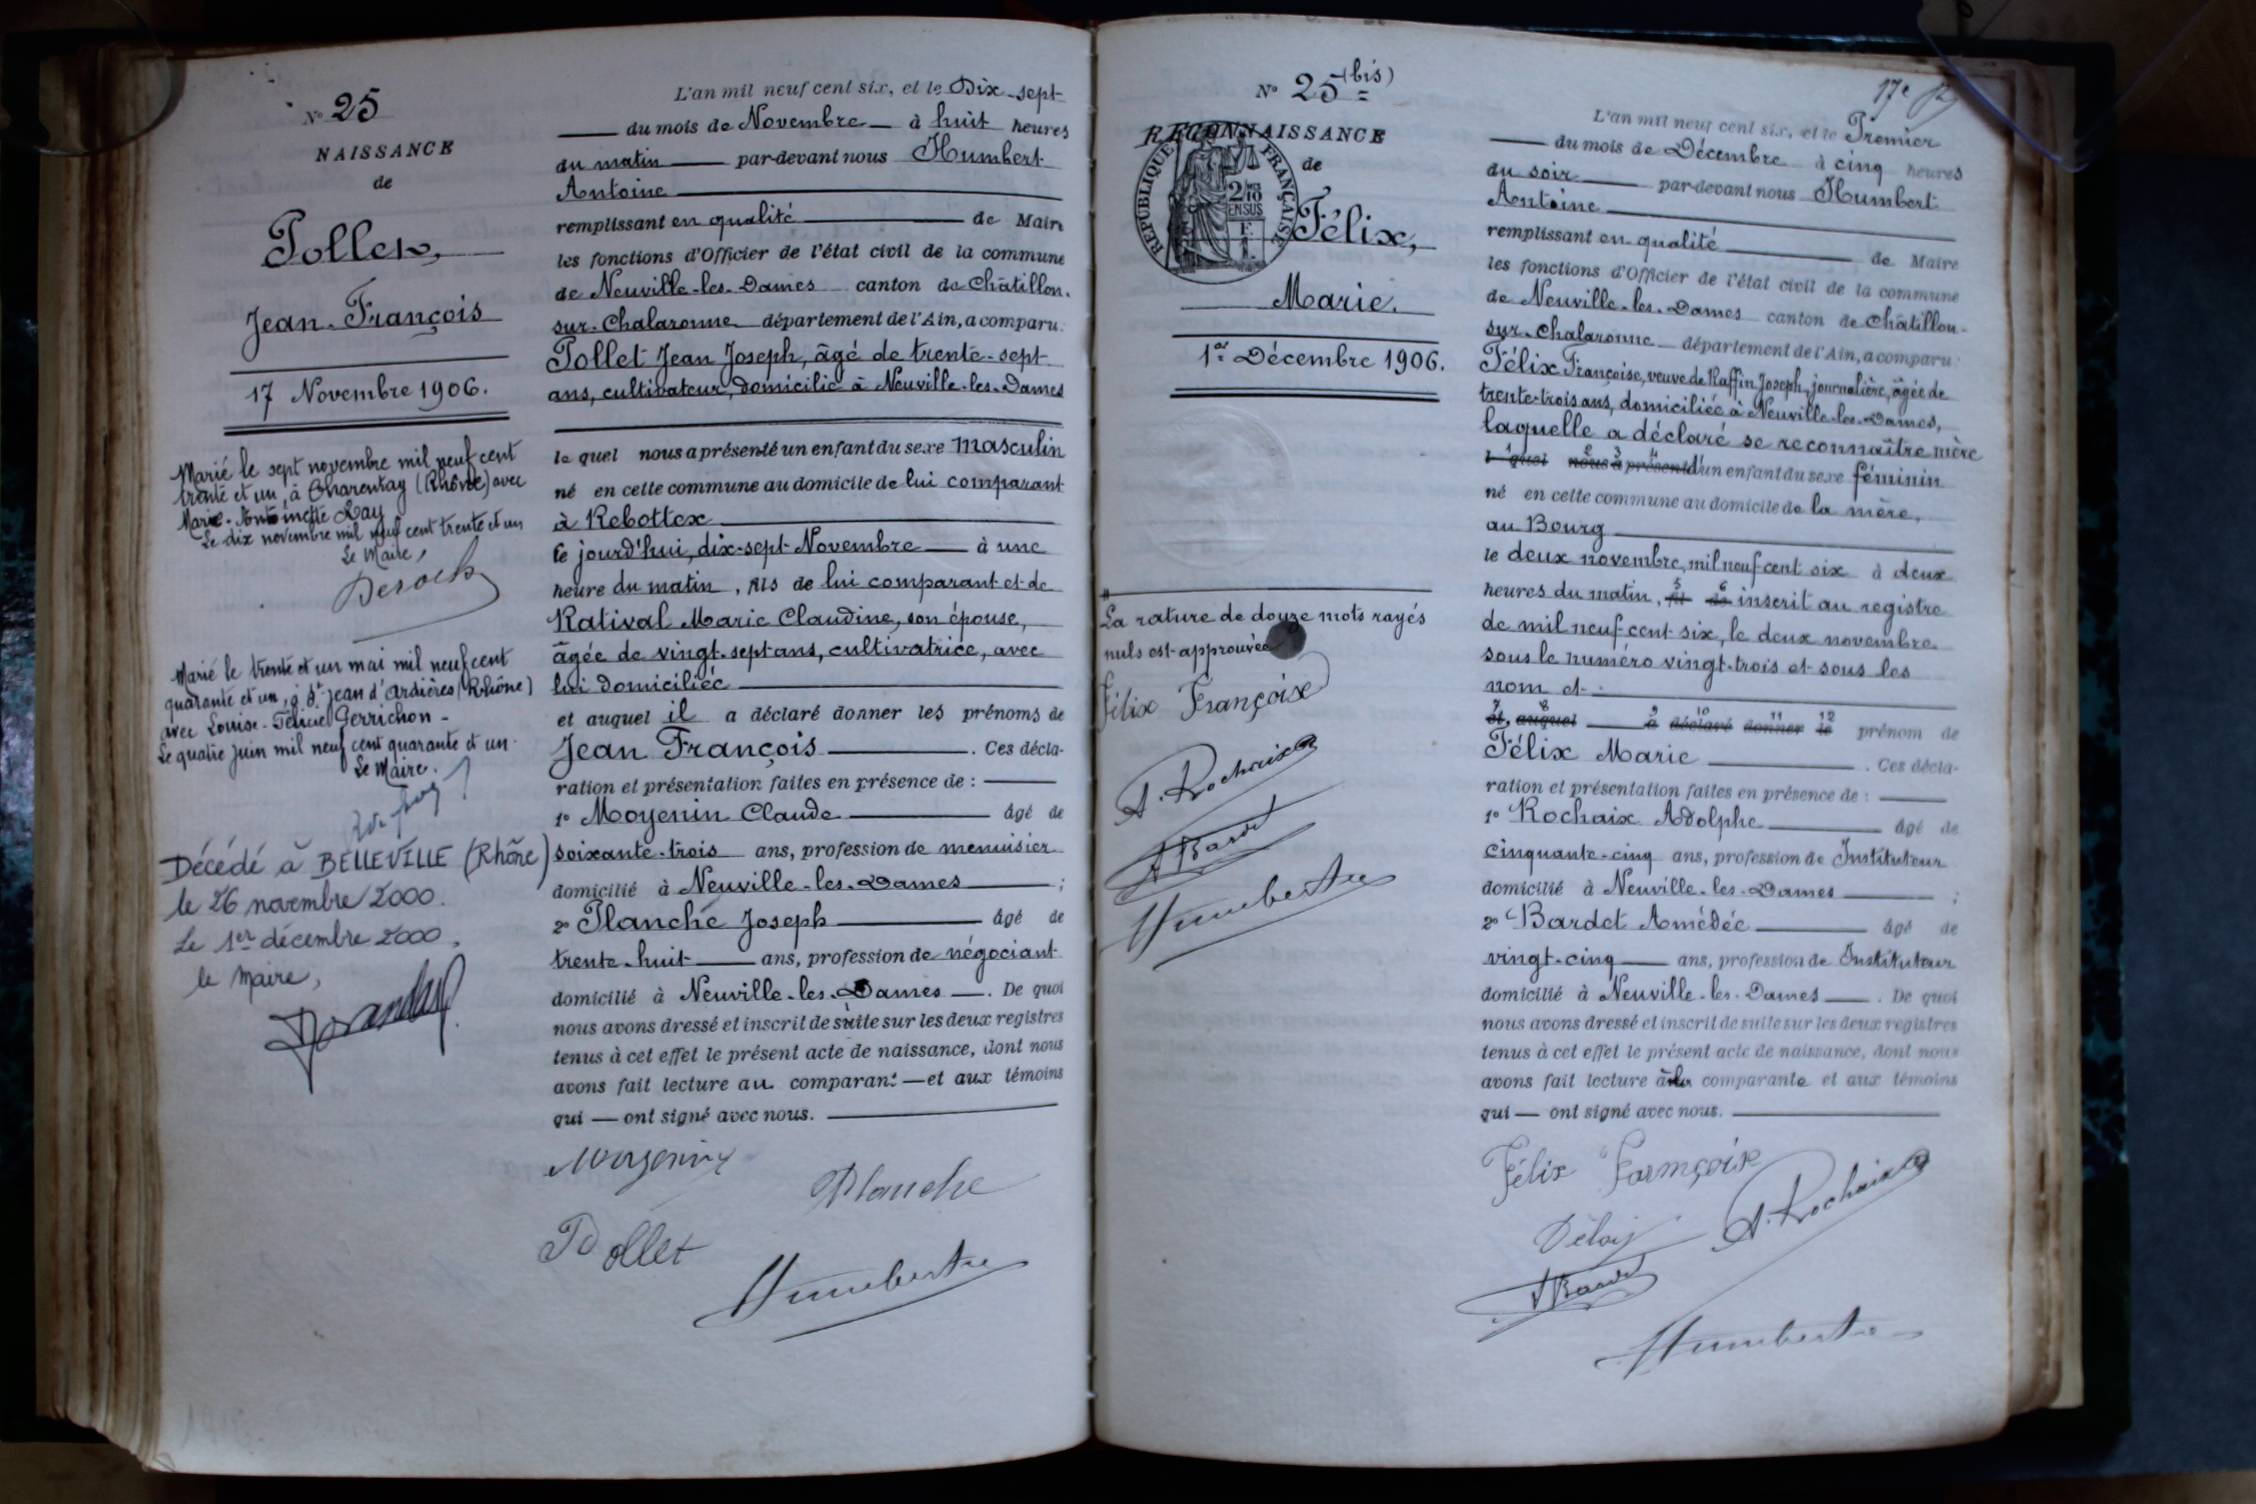 N° 25
NAISSANCE
de
Pollet,
Jean-François
17 Novembre 1906.
Marié le sept novembre mil neuf cent
trente et un, à Charentay (Rhône) avec
Marie-Antoinette Ray
Le dix novembre mil neuf cent trente et un
Le Maire,
Marié le trente et un mai mil neuf cent
quarante et un, à St Jean d'Ardières (Rhône)
avec Louise Gerrichon -
Le quatre juin mil neuf cent quarante et un.
Le Maire.
Décédé à BELLEVILLE (Rhône)
le 26 novembre 2000.
Le 1er décembre 2000,
le Maire,
L'an mil neuf cent six, et le Dix-sept
du mois de Novembre à huit heures
du matin par-devant nous Humbert
Antoine
remplissant en qualité de Maire
les fonctions d'Officier de l'état civil de la commune
de Neuville-les-Dames canton de Châtillon-
sur-Chalaronne département de l'Ain, a comparu
Pollet Jean Joseph, âgé de trente-sept
ans, cultivateur, domicilié à Neuville-les-Dames
le quel nous a présenté un enfant du sexe masculin
né en cette commune au domicile de lui comparant
à Rebottex
ce jourd'hui, dix-sept Novembre à une
heure du matin, fils de lui comparant et de
Rativat Marie Claudine, son épouse,
âgée de vingt-sept ans, cultivatrice, avec
lui domiciliée
et auquel il a déclaré donner les prénoms de
Jean François . Ces décla-
ration et présentation faites en présence de :
1° Moyenin Claude âgé de
soixante-trois ans, profession de menuisier
domicilié à Neuville-les-Dames ;
2° Planche Joseph âgé de
trente-huit ans, profession de négociant
domicilié à Neuville-les-Dames . De quoi
nous avons dressé et inscrit de suite sur les deux registres
tenus à cet effet le présent acte de naissance, dont nous
avons fait lecture au comparant et aux témoins
qui ont signé avec nous.
Moyenin
Planche
Pollet
Humbert
N° 25 (bis)
RECONNAISSANCE
de
RÉPUBLIQUE FRANÇAISE
2/10
EN SUS
Félix,
Marie.
1er Décembre 1906.
La rature de douze mots rayés
nuls est approuvée
Félix Françoise
A. Rochaix
A Bardet
Humbert
17e
L'an mil neuf cent six, et le Premier
du mois de Décembre à cinq heures
du soir par-devant nous Humbert
Antoine
remplissant en qualité de Maire
les fonctions d'Officier de l'état civil de la commune
de Neuville-les-Dames canton de Châtillon-
sur-Chalaronne département de l'Ain, a comparu
Félix Françoise, veuve de Raffin Joseph, journalière, âgée de
trente-trois ans, domiciliée à Neuville-les-Dames,
laquelle a déclaré se reconnaître mère
l quel nous a présenté d'un enfant du sexe féminin
né en cette commune au domicile de la mère,
au Bourg
le deux novembre, mil neuf cent six à deux
heures du matin, fil de inscrit au registre
de mil neuf cent six, le deux novembre
sous le numéro vingt-trois et sous les
nom et
et auquel a déclaré donner le prénom de
Félix Marie . Ces décla-
ration et présentation faites en présence de :
1° Rochaix Adolphe âgé de
cinquante-cinq ans, profession de Instituteur
domicilié à Neuville-les-Dames ;
2° Bardet Amédée âgé de
vingt-cinq ans, profession de Instituteur
domicilié à Neuville-les-Dames . De quoi
nous avons dressé et inscrit de suite sur les deux registres
tenus à cet effet le présent acte de naissance, dont nous
avons fait lecture à la comparante et aux témoins
qui ont signé avec nous.
Félix Françoise
A. Rochaix
A Bardet
Humbert